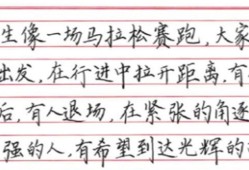 生像一场马拉松赛跑,大家
出发,在行进中拉开距离,有
后,有人退场,在紧张的角逐
强的人,有希望到达光辉的